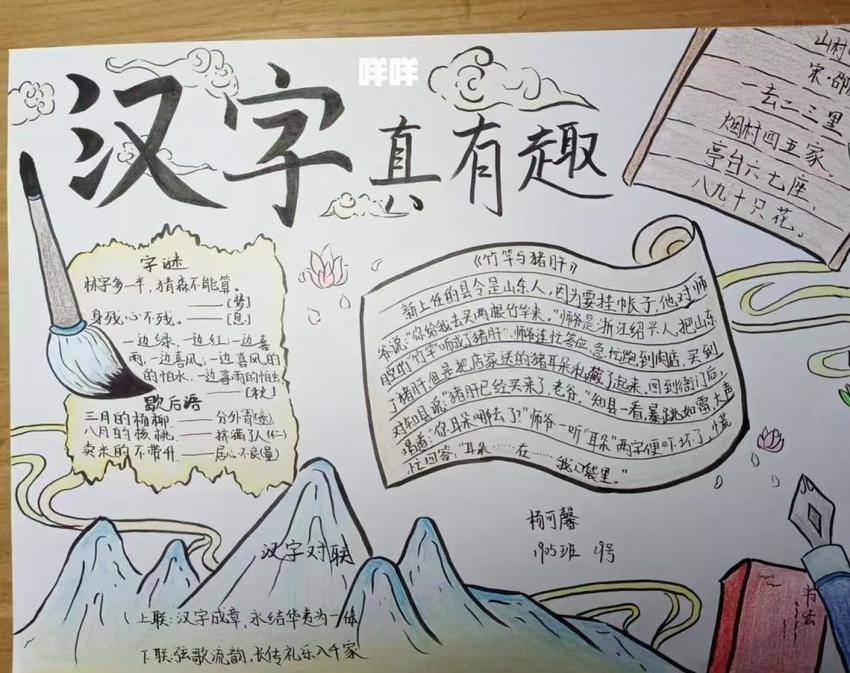 咩咩
汉字真有趣
山村
宋·邵
一去二三里
烟村四五家。
亭台六七座，
八九十只花。
字谜
林字多一半，猜森不能算。
——[梦]
身残心不残。——[息]
一边绿，一边红；一边喜
雨，一边喜风；一边喜风的
的怕水，一边喜雨的怕虫
——[秋]
歇后语
三月的杨柳——分外青(亲)
八月的核桃——挤满了人(仁)
卖米的不带升——居心不良(量)
《竹竿与猪肝》
新上任的县令是山东人，因为要挂帐子，他对师
爷说："你给我去买两根竹竿来。"师爷是浙江绍兴人，把山东
腔的"竹竿"听成了"猪肝"，师爷连忙答应，急忙跑到肉店，买到
了猪肝，但是把店家送的猪耳朵私藏了起来，回到衙门后，
对知县说"猪肝已经买来了，老爷。"知县一看，暴跳如雷，大声
喝着："你耳朵哪去了？"师爷一听"耳朵"两字便吓坏了，慌
忙回答："耳朵……在……我口袋里。"
杨可馨
1905班 29号
汉字对联
上联：汉字成章，永结华夷为一体
下联：弦歌流韵，长传礼乐入千家
书法